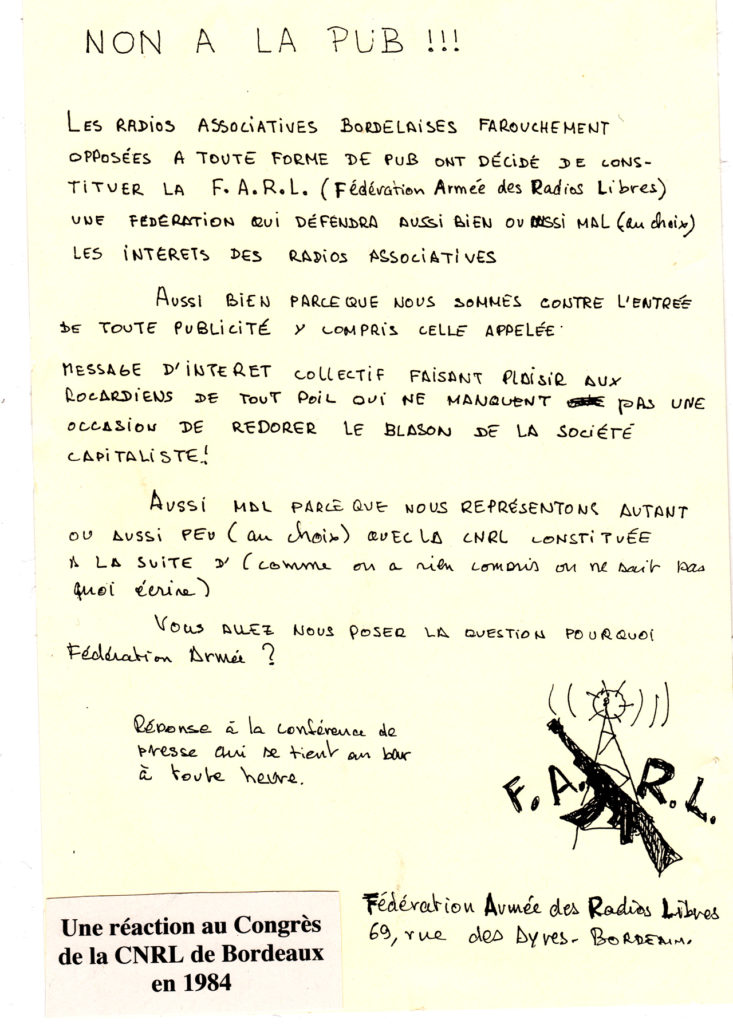 NON A LA PUB !!!
LES RADIOS ASSOCIATIVES BORDELAISES FAROUCHEMENT
OPPOSÉES A TOUTE FORME DE PUB ONT DÉCIDÉ DE CONS-
TITUER LA F.A.R.L. (Fédération Armée des Radios Libres)
UNE FEDERATION QUI DÉFENDRA AUSSI BIEN OU AUSSI MAL (au choix)
LES INTERETS DES RADIOS ASSOCIATIVES
AUSSI BIEN PARCE QUE NOUS SOMMES CONTRE L'ENTRÉE
DE TOUTE PUBLICITÉ Y COMPRIS CELLE APPELÉE
MESSAGE D'INTERET COLLECTIF FAISANT PLAISIR AUX
ROCARDIENS DE TOUT POIL QUI NE MANQUENT PAS UNE
OCCASION DE REDORER LE BLASON DE LA SOCIÉTÉ
CAPITALISTE!
AUSSI MAL PARCE QUE NOUS REPRÉSENTONS AUTANT
OU AUSSI PEU (au choix) QUE LA CNRL CONSTITUÉE
A LA SUITE D' (comme on a rien compris on ne sait pas
quoi écrire)
VOUS ALLEZ NOUS POSER LA QUESTION POURQUOI
Fédération Armée ?
Réponse à la conférence de
presse qui se tient au bar
à toute heure.
F.A.R.L.
Fédération Armée des Radios Libres
69, rue des Ayres - BORDEAUX.
Une réaction au Congrès
de la CNRL de Bordeaux
en 1984